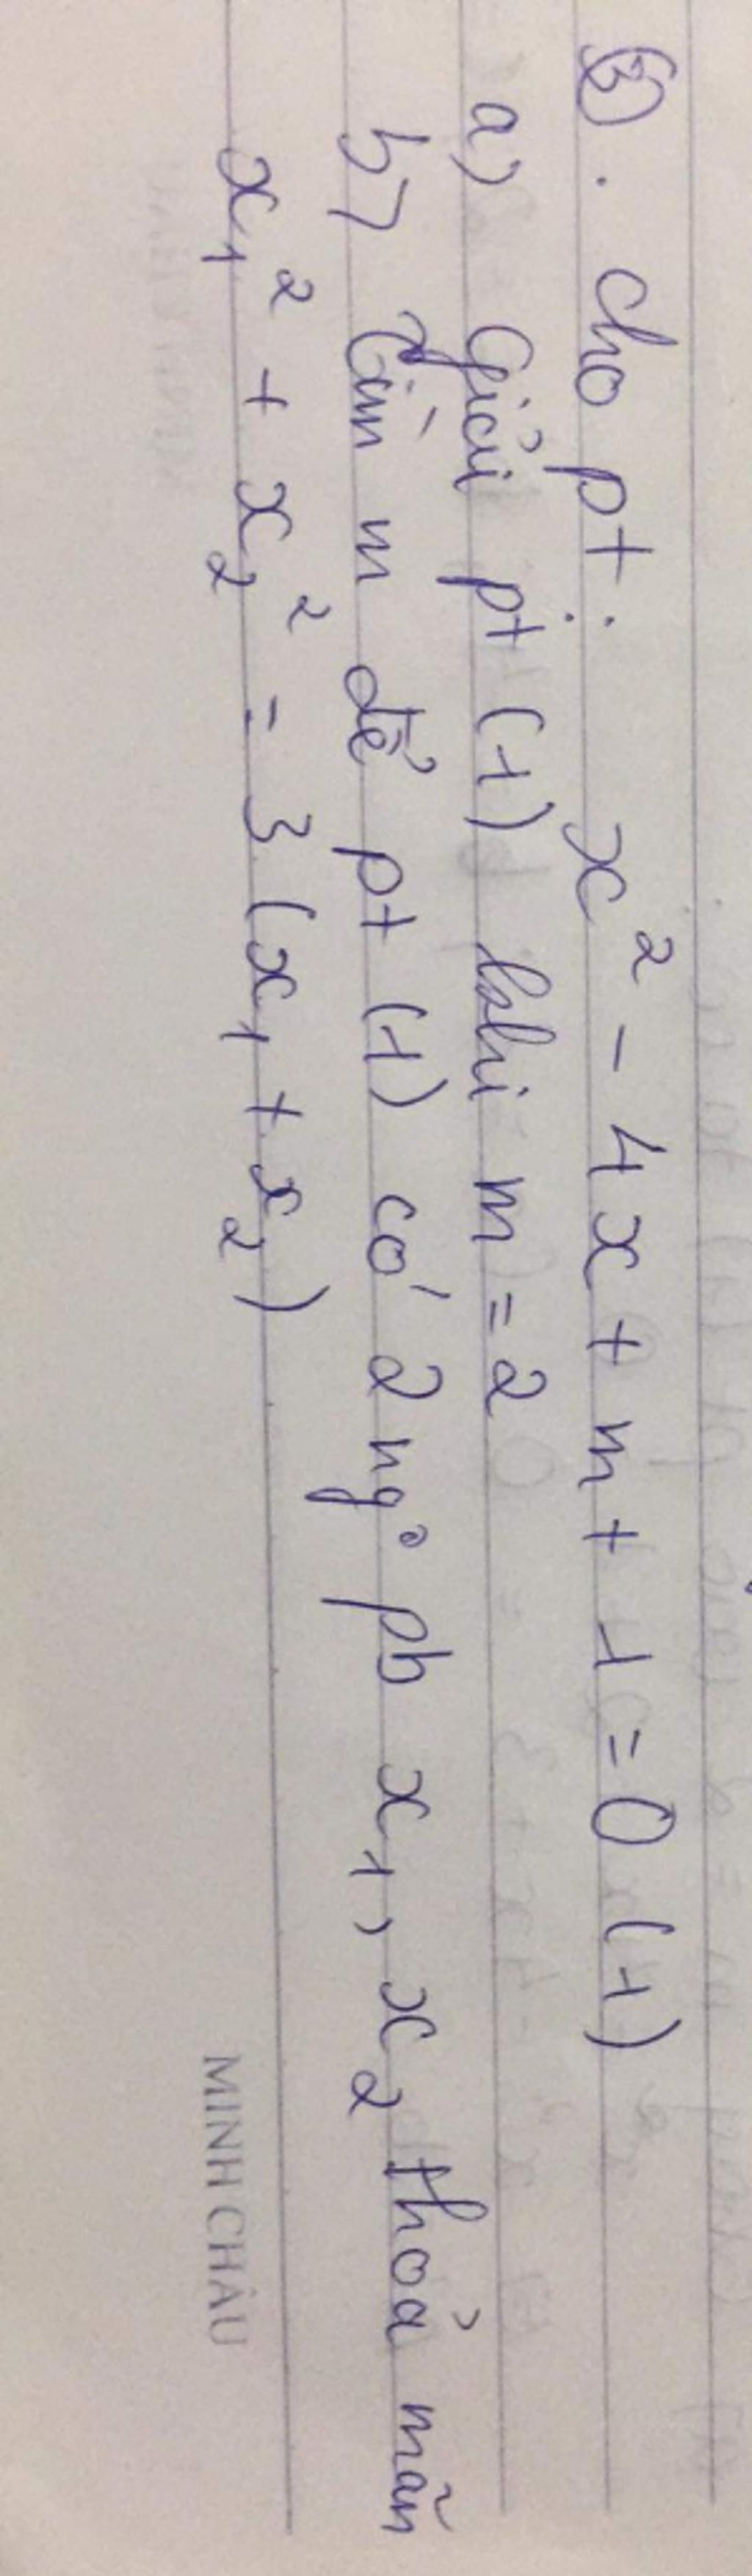 ③. Cho pt: x² - 4x + m + 1 = 0 (1)
a) Giải pt (1) khi m = 2
b) Tìm m để pt (1) có 2 ngº pb x₁, x₂ thoả mãn
x₁² + x₂² = 3 (x₁ + x₂)
MINH CHÂU